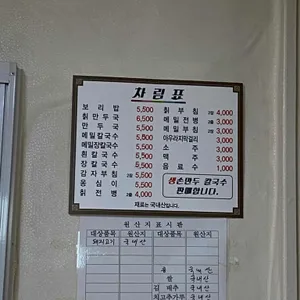 차림표
보리밥 5,500
칡만두국 6,500
만두국 5,500
메밀칼국수 5,500
메밀장칼국수 5,500
흰칼국수 5,500
장칼국수 5,500
감자부침 2장 5,500
옹심이 5,500
칡전병 4,000
칡부침 4,000
메밀전병 3,000
메밀부침 3,000
아우라지막걸리 3,000
소주 3,000
맥주 3,000
음료수 1,000
생손만두 칼국수
판매합니다.
재료는 국내산입니다.
원산지표시판
대상품목 원산지 대상품목 원산지
돼지고기 국내산
쌀 국내산
김 배추 국내산
고추가루 국내산